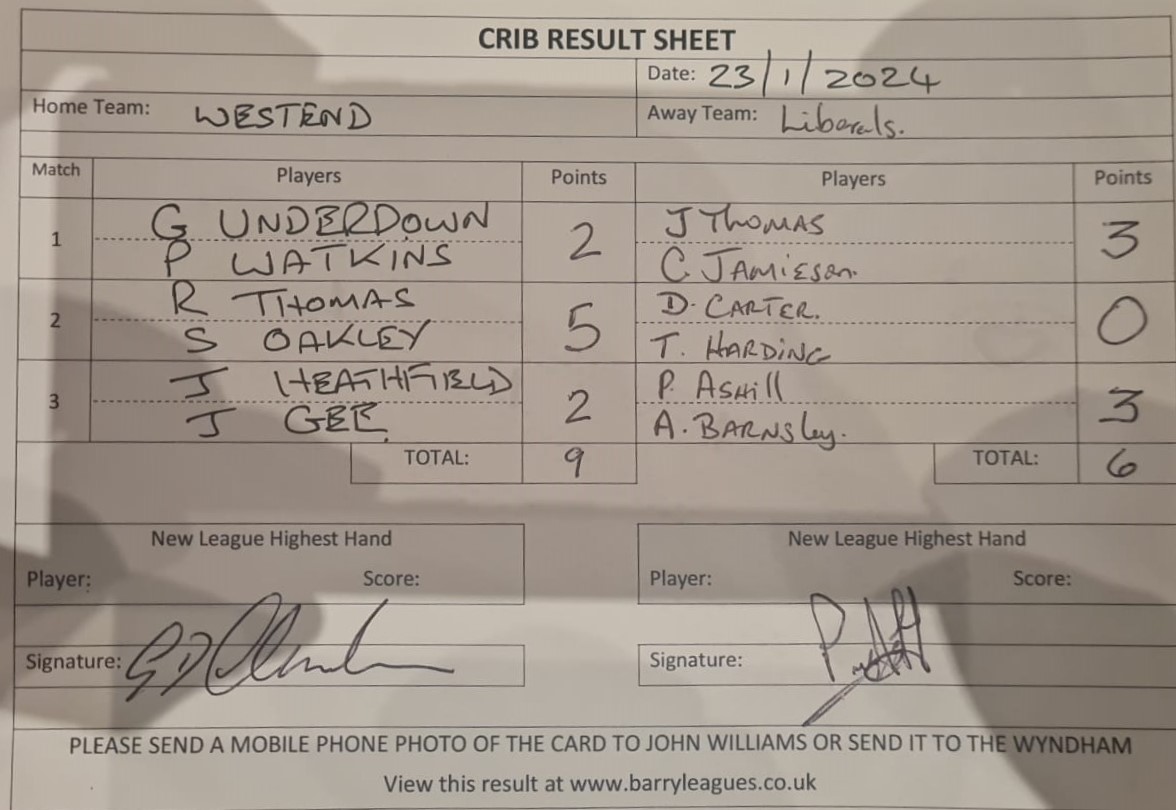 CRIB RESULT SHEET
Date: 23/1/2024
Home Team: WESTEND Away Team: Liberals.
Match Players Points Players Points
1 G UNDERDOWN 2 J THOMAS 3
P WATKINS C JAMIESON.
2 R THOMAS 5 D. CARTER. 0
S OAKLEY T. HARDING
3 J HEATHFIELD 2 P. ASHill 3
J GEE A. BARNSley.
TOTAL: 9 TOTAL: 6
New League Highest Hand New League Highest Hand
Player: Score: Player: Score:
Signature: Signature:
PLEASE SEND A MOBILE PHONE PHOTO OF THE CARD TO JOHN WILLIAMS OR SEND IT TO THE WYNDHAM
View this result at www.barryleagues.co.uk